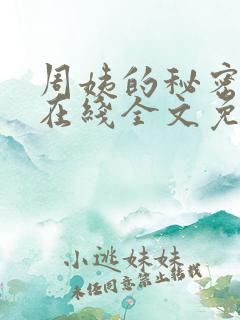 周姨的秘密
在线全文免
小逃妹妹
未经同意禁止转载